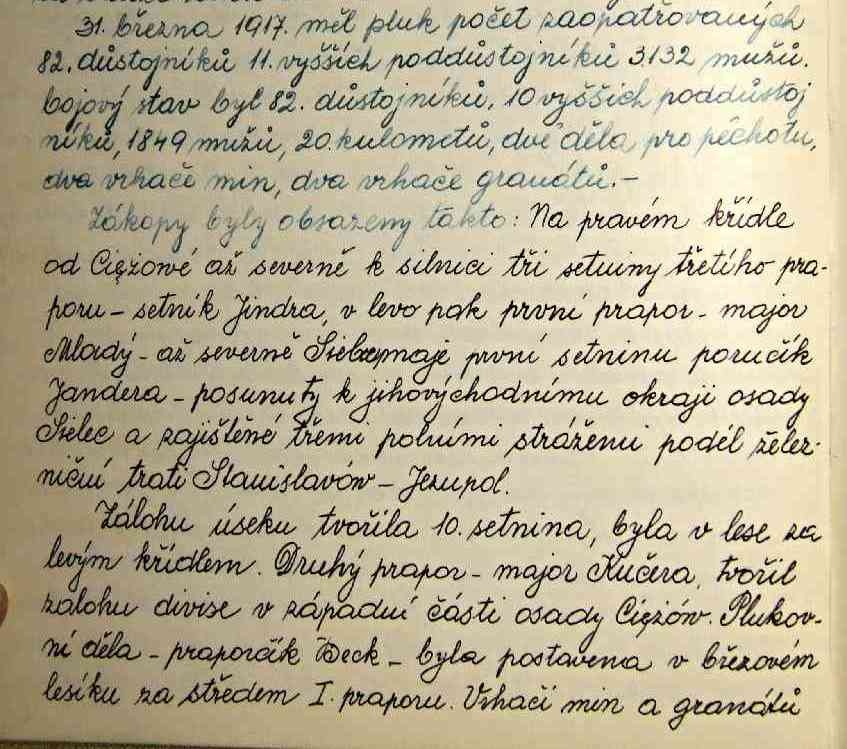 31. března 1917. měl pluk počet zaopatřovaných
82. důstojníků 11. vyšších poddůstojníků 3.132 mužů.
bojový stav byl 82. důstojníků, 10 vyšších poddůstoj
níků, 1849 mužů, 20. kulometů, dvě děla pro pěchotu,
dva vrhače min, dva vrhače granátů.—
Zákopy byly obsazeny takto: Na pravém křídle
od Ciężowé až severně k silnici tři setniny třetího pra-
poru – setník Jindra, v levo pak první prapor – major
Mladý – až severně první setninu poručík
Jandera – posunuty k jihovýchodnímu okraji osady
Sielec a zajištěné třemi polními strážemi podél želez-
niční trati Stanislavów – Jezupol.
Zálohu úseku tvořila 10. setnina, byla v lese za
levým křídlem. Druhý prapor – major Kučera, tvořil
zálohu divise v západní části osady Ciężów. Plukov-
ní děla – praporčík Beck – byla postavena v březovém
lesíku za středem I. praporu. Vrhači min a granátů